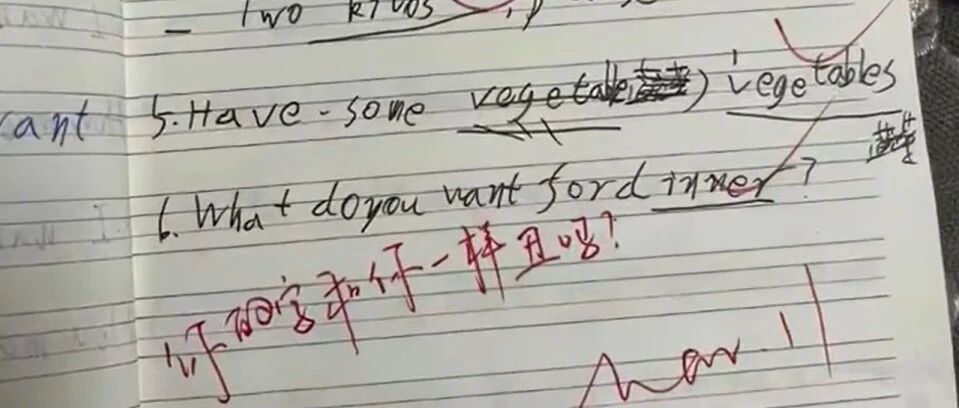 Two kilos
ant 5. Have some vegetable vegetables
6. What do you want for dinner?
你和你写字一样丑吗?
Nov. 11